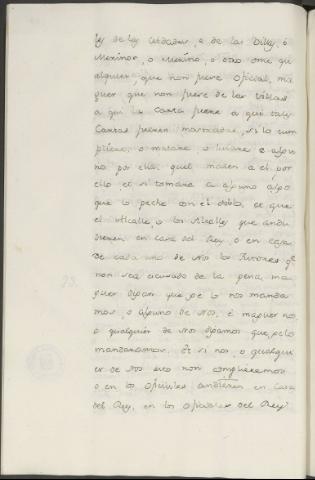 ley de las Cibdades, o de las Villas, o
Merinos, o Merino, o otro ome qu
alquier, que non fuere oficial, ma
guer que non fuere de las villas
a qui la Carta fuere a qui tales
Cartas fueren mandadas, si lo cum
pliere, o matare, o lisiare a algu
no por ella, quel maten a el por
ello, et si tomare a alguno algo
que lo peche con el doblo, et que
el Alcalle, o los Alcalles que andu
dieren en casa del Rey, o en casa
de cada uno de nos los Tutores qe
non sea escusado de la pena ma
guer digan que ge lo nos manda
mos, o alguno de nos, e maguer nos
o qualquier de nos digamos que ge lo
mandamos. Et si nos, o qualqui
er de nos esto non cumplieremos
o en los oficiales andieren en Casa
del Rey, en los oficiales del Rey